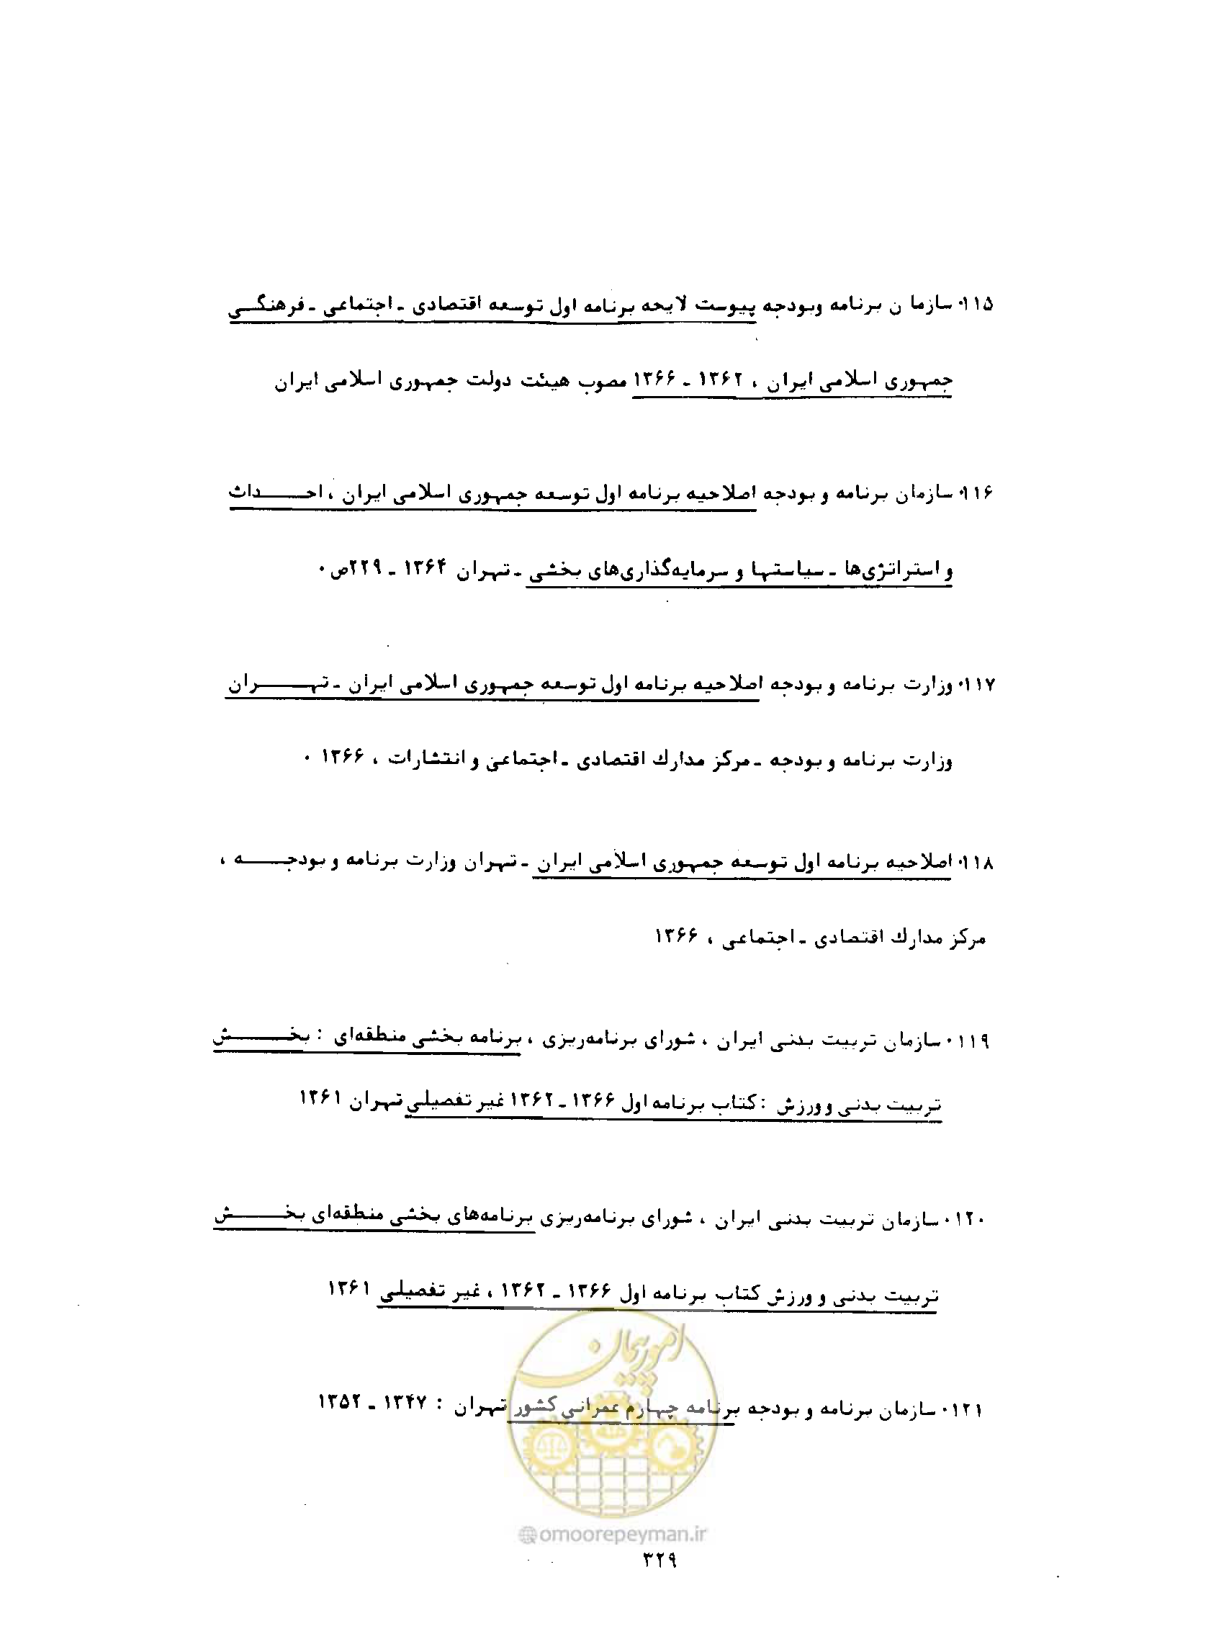 ۱۱۵۰ سازمان برنامه وبودجه پیوست لایحه برنامه اول توسعه اقتصادی ـ اجتماعی ـ فرهنگـــی
جمهوری اسلامی ایران ، ۱۳۶۲ ـ ۱۳۶۶ مصوب هیئت دولت جمهوری اسلامی ایران
۱۱۶۰ سازمان برنامه و بودجه اصلاحیه برنامه اول توسعه جمهوری اسلامی ایران ، احـــــداث
و استراتژی‌ها ـ سیاستها و سرمایه‌گذاری‌های بخشی ـ تهران ۱۳۶۴ ـ ۲۲۹ص۰
۱۱۷۰ وزارت برنامه و بودجه اصلاحیه برنامه اول توسعه جمهوری اسلامی ایران ـ تهـــــران
وزارت برنامه و بودجه ـ مرکز مدارک اقتصادی ـ اجتماعی و انتشارات ، ۱۳۶۶ ۰
۱۱۸۰ اصلاحیه برنامه اول توسعه جمهوری اسلامی ایران ـ تهران وزارت برنامه و بودجـــــه ،
مرکز مدارک اقتصادی ـ اجتماعی ، ۱۳۶۶
۱۱۹۰ سازمان تربیت بدنی ایران ، شورای برنامه‌ریزی ، برنامه بخشی منطقه‌ای : بخـــــش
تربیت بدنی و ورزش : کتاب برنامه اول ۱۳۶۶ ـ ۱۳۶۲ غیر تفصیلی تهران ۱۳۶۱
۱۲۰۰ سازمان تربیت بدنی ایران ، شورای برنامه‌ریزی برنامه‌های بخشی منطقه‌ای بخـــــش
تربیت بدنی و ورزش کتاب برنامه اول ۱۳۶۶ ـ ۱۳۶۲ ، غیر تفصیلی ۱۳۶۱
امور پیمان
۱۲۱۰ سازمان برنامه و بودجه برنامه چهارم عمرانی کشور تهران : ۱۳۴۷ ـ ۱۳۵۲
@omoorepeyman.ir
۳۲۹